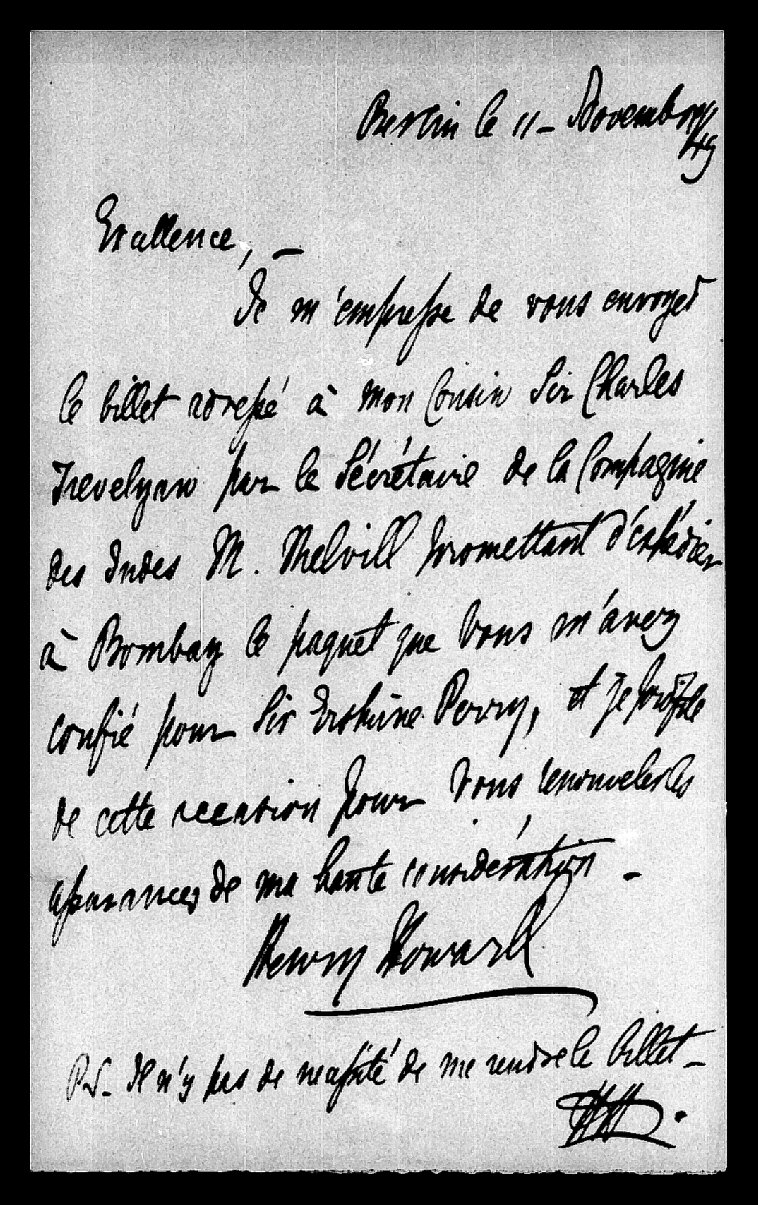 Berlin le 11 – November/49
Excellence, –
Je m'empresse de vous envoyer
le billet adressé à mon Cousin Sir Charles
Trevelyan par le Sécrétaire de la Compagnie
des Indes M. Melvill promettant d'expédier
à Bombay le paquet que vous m'avez
confié pour Sir Erskine Perry, et je profite
de cette occasion pour vous renouveler les
assurances de ma haute considération –
Henry Howard
P.S. Il n'y pas de necessité de me rendre le billet –
HH.